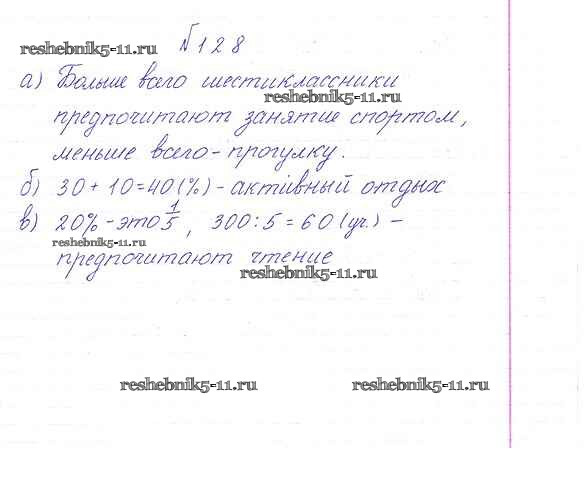 reshebnik5-11.ru
№128
а) Больше всего шестиклассники
reshebnik5-11.ru
предпочитают занятие спортом,
меньше всего - прогулку.
б) 30 + 10 = 40 (%) - активный отдых
в) 20% - это 1/5, 300 : 5 = 60 (уч.) -
reshebnik5-11.ru
предпочитают чтение
reshebnik5-11.ru
reshebnik5-11.ru reshebnik5-11.ru